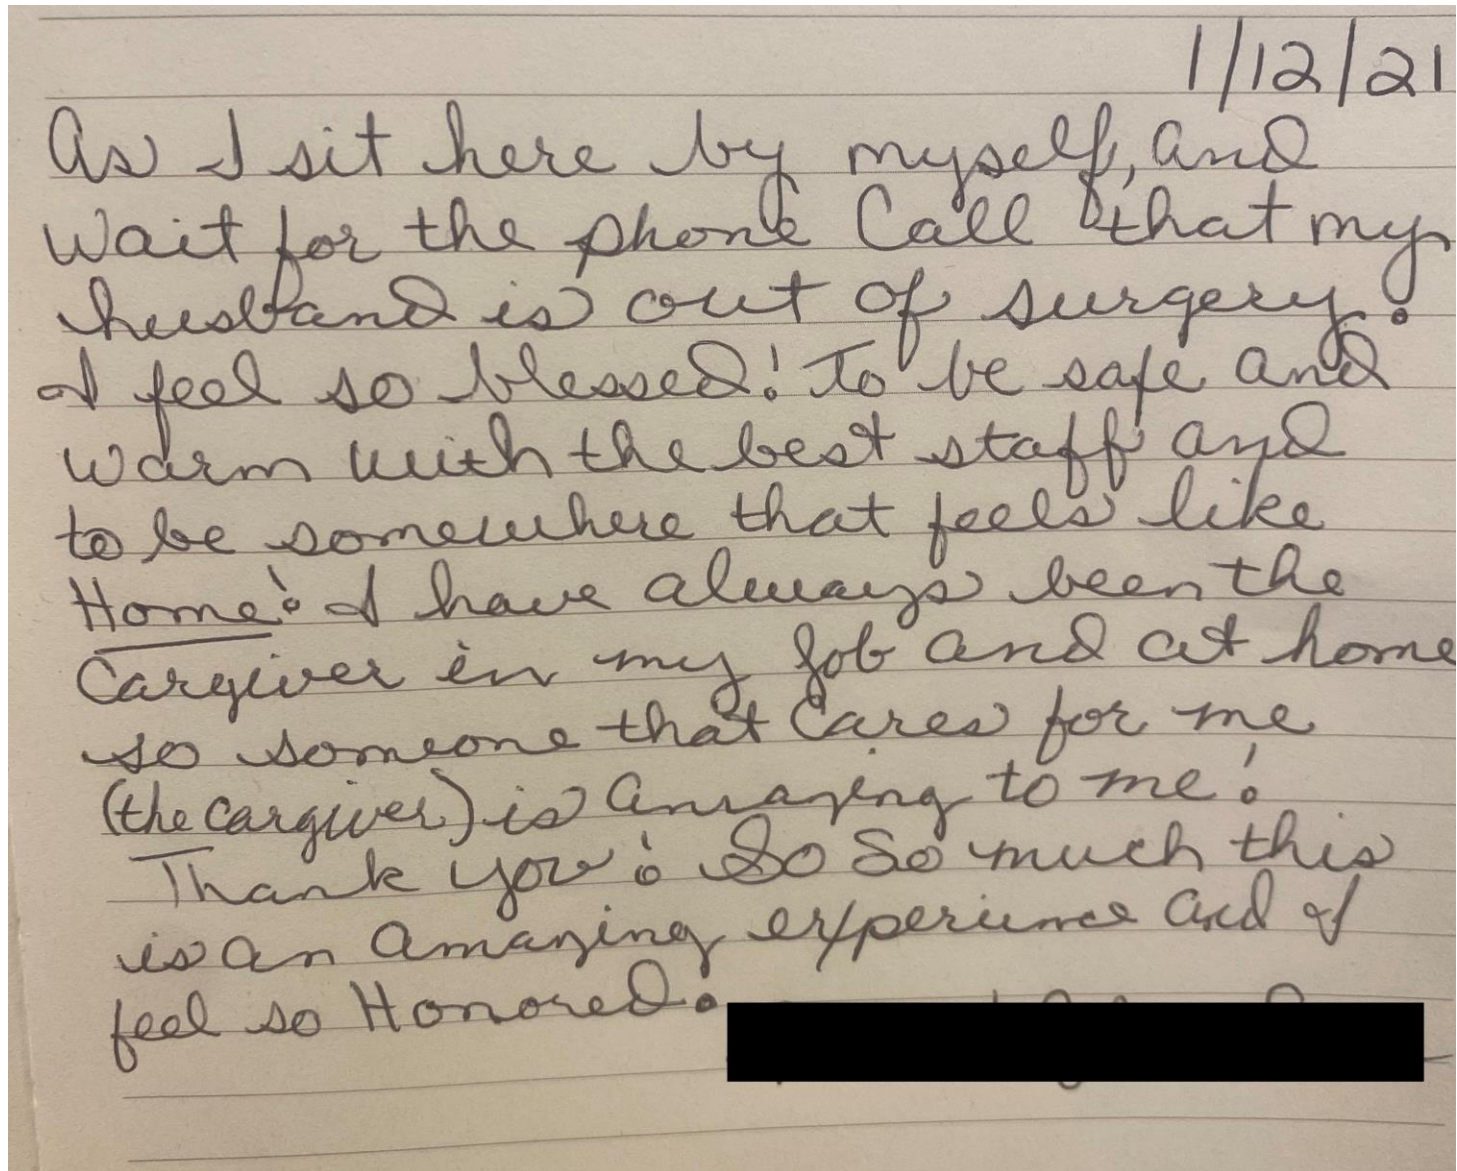 1/12/21
As I sit here by myself, and
wait for the phone Call that my
husband is out of surgery!
I feel so blessed! To be safe and
warm with the best staff and
to be somewhere that feels like
Home! I have always been the
Cargiver in my job and at home
so someone that Cares for me
(the cargiver) is amazing to me!
Thank you! So So much this
is an amazing experience and I
feel so Honored!